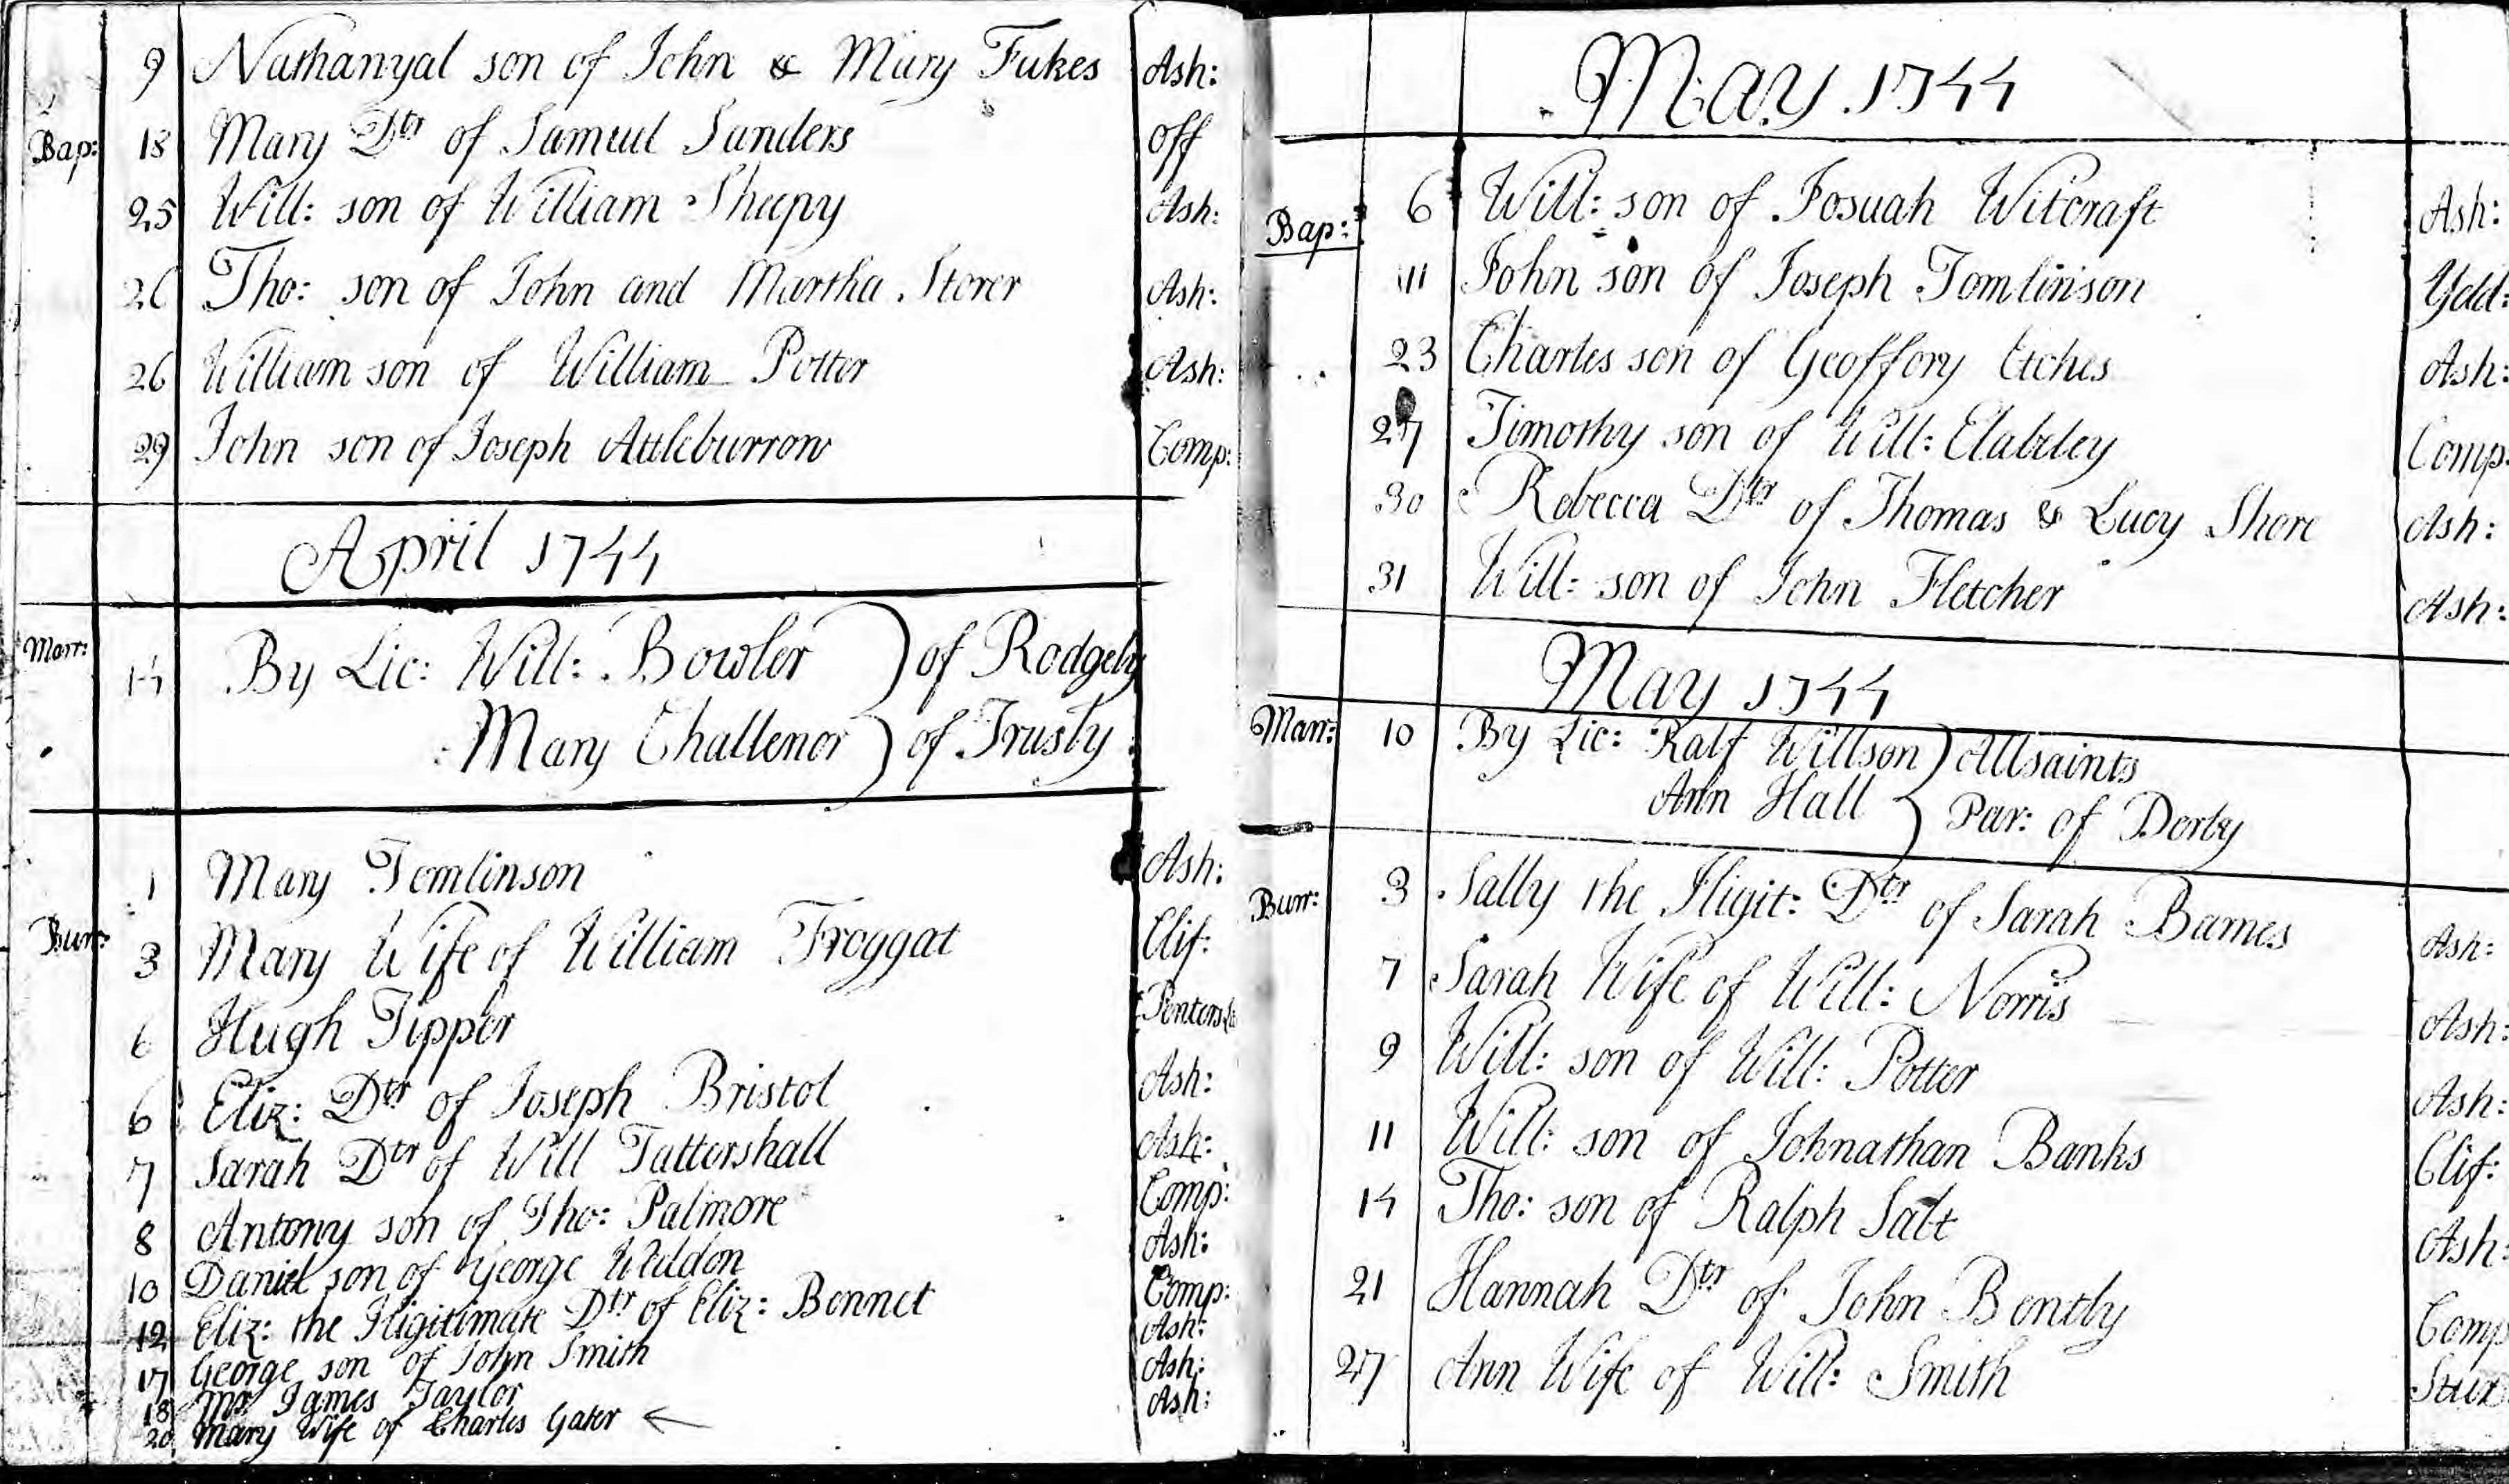 9 Nathanyal son of John & Mary Fukes Ash:
Bap: 18 Mary Dtr of Samuel Sanders off
25 Will: son of William Sheepy Ash:
26 Tho: son of John and Martha Storer Ash:
26 William son of William Potter Ash:
29 John son of Joseph Attleburrow Comp:
April 1744
Marr: 14 By Lic: Will: Bowler of Rodgely
Mary Challenor of Trusly
1 Mary Tomlinson Ash:
Burr: 3 Mary Wife of William Froggat Clif:
6 Hugh Tipper
6 Eliz: Dtr of Joseph Bristol Ash:
7 Sarah Dtr of Will Tattershall Ash:
8 Antony son of Tho: Palmore Comp:
10 Daniel son of George Weldon Ash:
12 Eliz: the Iligitimate Dtr of Eliz: Bennet Comp:
17 George son of John Smith Ash:
18 Mr James Taylor Ash:
20 Mary Wife of Charles Gater Ash:
May 1744
Bap: 6 Will: son of Josuah Witcraft Ash:
11 John son of Joseph Tomlinson Yeld:
23 Charles son of Geoffory Etches Ash:
27 Timothy son of Will: Comp:
30 Rebecca Dtr of Thomas & Lucy Shore Ash:
31 Will: son of John Fletcher Ash:
May 1744
Marr: 10 By Lic: Ralf Willson Allsaints
Ann Hall Par: of Derby
Burr: 3 Sally the Iligit: Dtr of Sarah Barnes Ash:
7 Sarah Wife of Will: Norris Ash:
9 Will: son of Will: Potter Ash:
11 Will: son of Johnathan Banks Clif:
14 Tho: son of Ralph Salt Ash:
21 Hannah Dtr of John Bently Comp
27 Ann Wife of Will: Smith